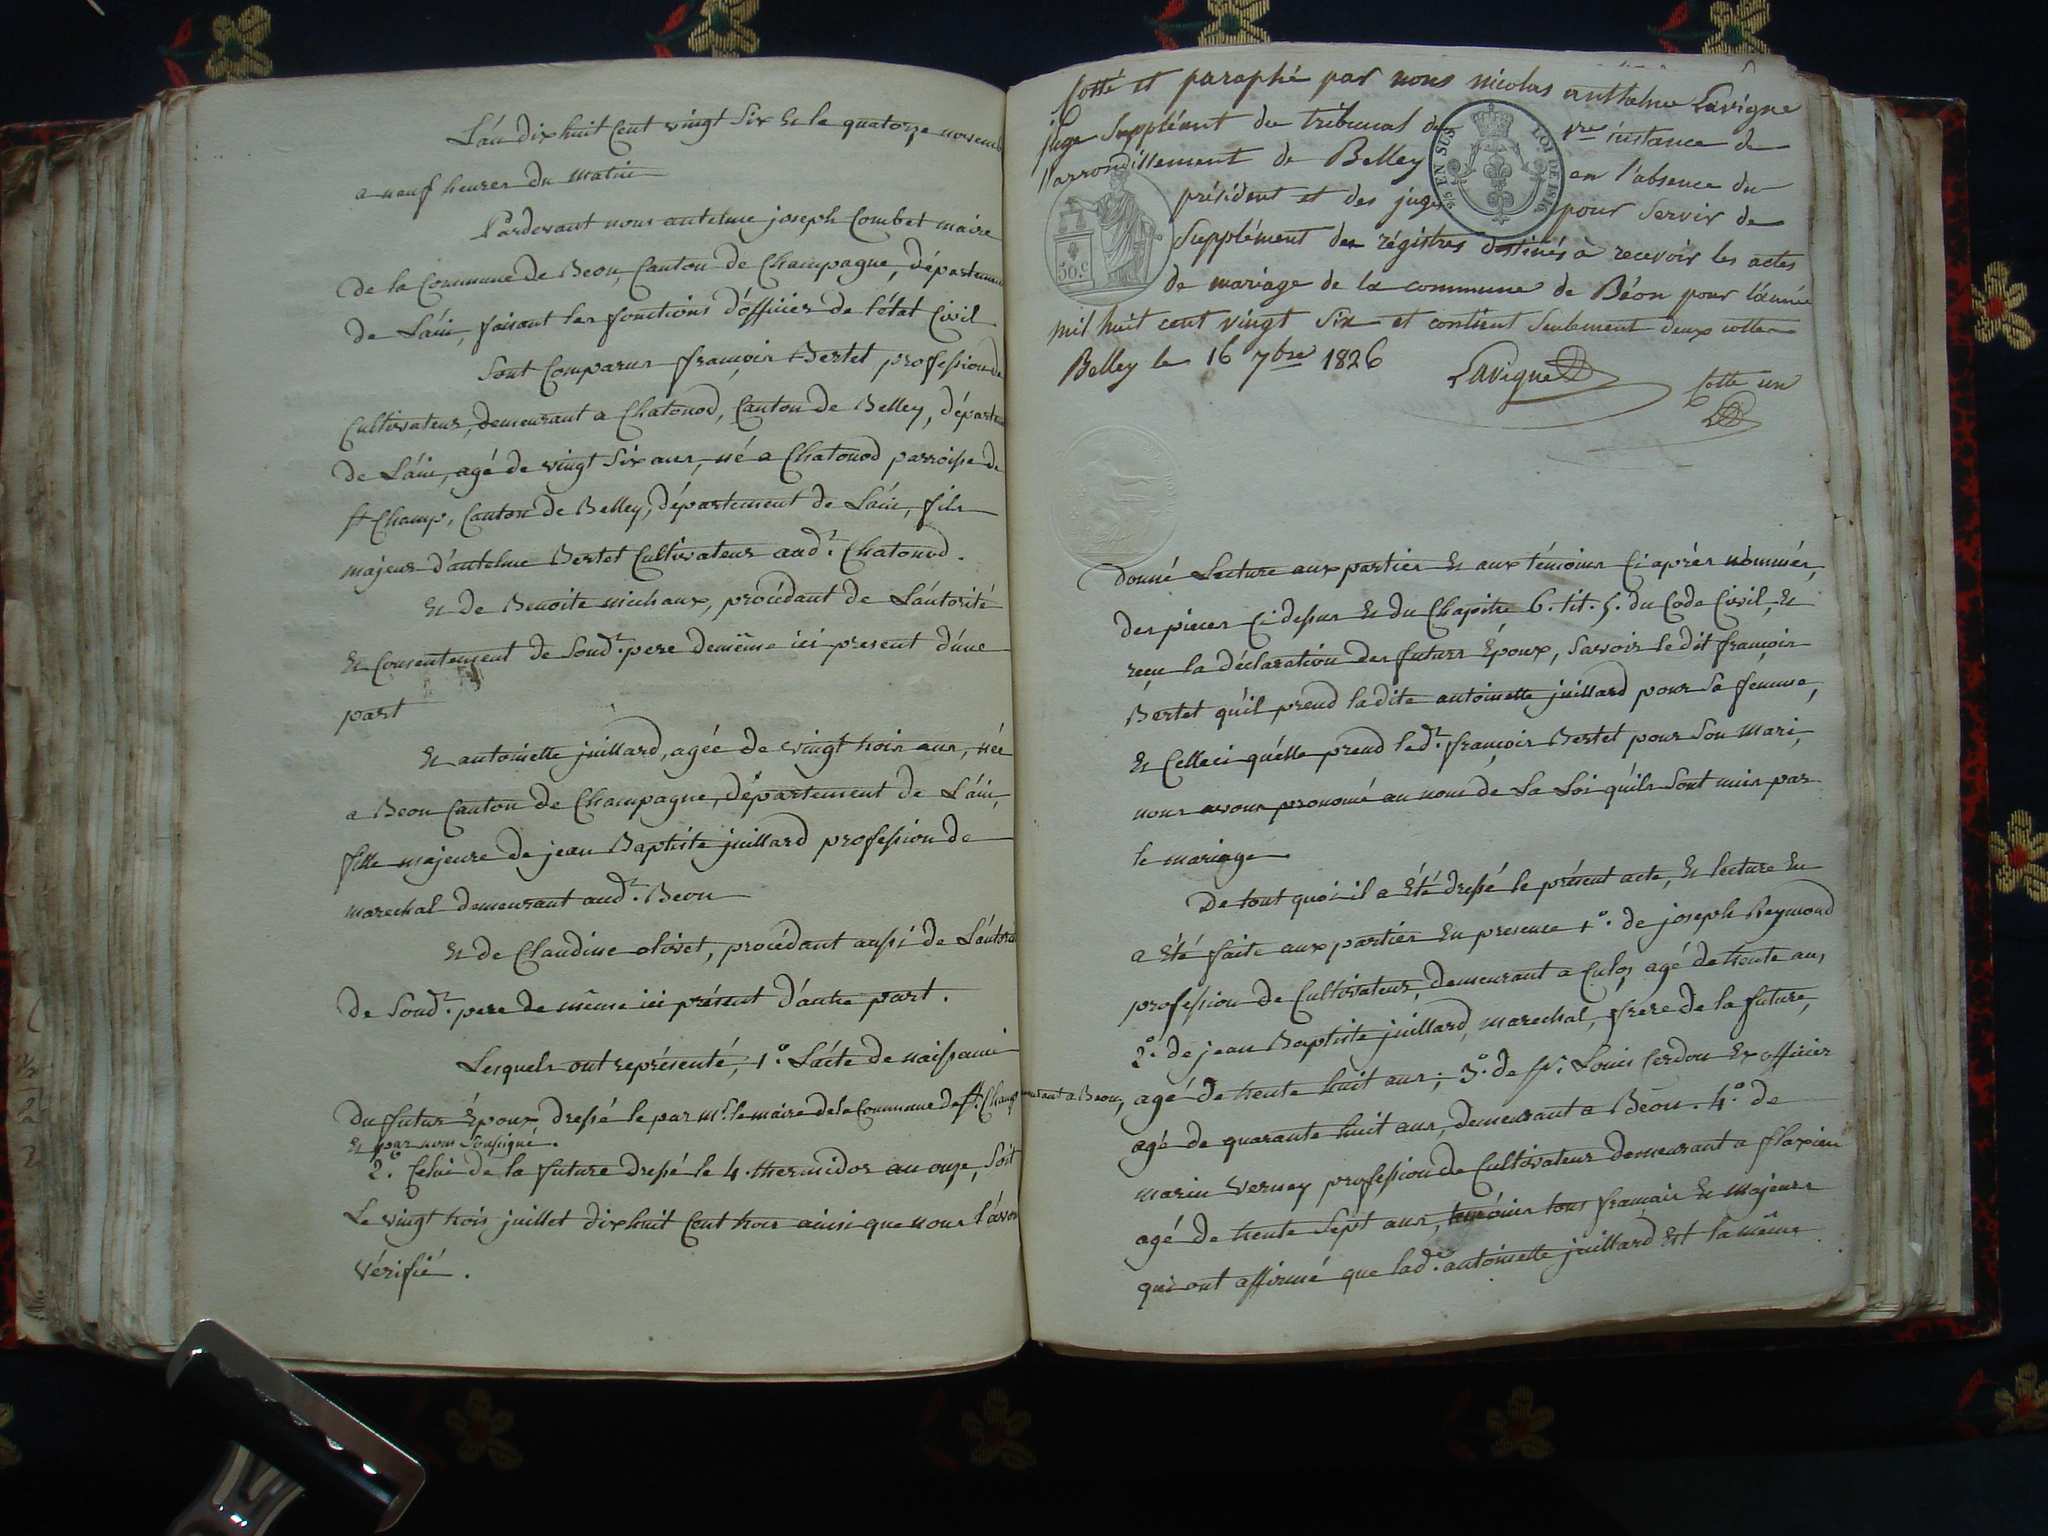 L'an dix huit Cent vingt Six et le quatorze novem
a neuf heures du matin
Pardevant nous antelme joseph Combet maire
de la Commune de Beon, Canton de Champagne, départem
de L'ain, faisant les fonctions d'officier de l'état Civil
Sont Comparus françois Bertet profession de
Cultivateur, demeurant a Chatonod, Canton de Belley, départe
de L'ain, agé de vingt Six ans, né a Chatonod parroisse de
St Champ, Canton de Belley, département de L'ain, fils
majeur d'antelme Bertet Cultivateur aud.t Chatonod.
Et de Benoite michaux, procédant de L'autorité
Et Consentement de Sond.t pere demême ici present d'une
part
Et antoinette juillard, agée de vingt trois ans, née
a Beon Canton de Champagne, département de L'ain,
fille majeure de jean Baptiste juillard profession de
marechal demeurant aud.t Beon
Et de Claudine olivet, procédant aussi de L'autori
de Sond.t pere de même ici présent d'autre part.
Lesquels ont représenté, 1.° L'acte de naissance
du futur Époux dressé le par mr. le maire de la Commune de St. Champ
Et par nous Soussigné.
2.° Celui de la future dressé le 4 thermidor an onze, Soit
Le vingt trois juillet dix huit Cent trois ainsi que nous l'avon
Vérifié.
Cotté et paraphé par nous nicolas anthelme Lavigne
juge Suppléant du tribunal de 1re instance de
l'arrondissement de Belley en l'absence du
président et des juges pour Servir de
Supplément des régistres destinés a recevoir les actes
de mariage de la commune de Béon pour l'année
mil huit cent vingt Six et contient Seulement deux cottes
Belley le 16 7bre 1826
Lavigne
Cotte un
2/5 EN SUS
LOI DE 1816
50.c
donné Lecture aux parties Et aux témoins Ci après nommés,
des pieces Ci dessus Et du Chapitre 6. tit. 5. du Code Civil, Et
reçu la déclaration des futurs Époux, Savoir le dit françois
Bertet qu'il prend ladite antoinette juillard pour Sa femme,
Et Celle ci qu'elle prend led.t françois Bertet pour Son Mari,
nous avons prononcé au nom de La Loi qu'ils Sont unis par
le mariage
De tout quoi il a Été dressé le présent acte, Et lecture En
a Été faite aux parties En presence 1.° de joseph Reymond
profession de Cultivateur, demeurant a Culoz agé de trente ans,
2.° de jean Baptiste juillard, marechal, frere de la future,
meurant a Beon, agé de trente huit ans; 3.° de Louis Cerdon Ex officier
agé de quarante huit ans, demeurant a Béon. 4.° de
marin Vernay profession de Cultivateur demeurant a flaxieu
agé de trente Sept ans, temoins tous français Et Majeurs
qui ont affirmé que lad.e antoinette juillard Est la même